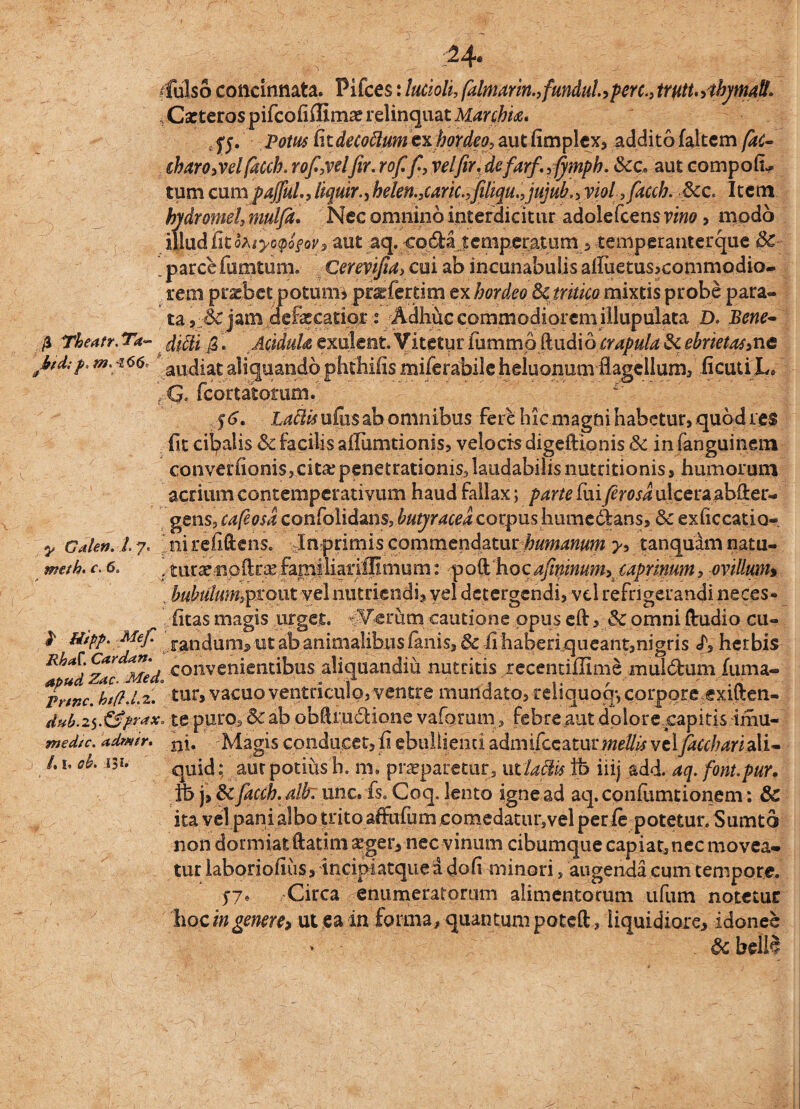 24.
fulso concinnata. Pisces: lucioli, salmarin., fundul., perc., trutt., thymall.
Cæteros piscosissimæ relinquat Marchiæ.
55. Potus fit decoctum ex hordeo, aut simplex, addito saltem sac-
charo, vel sacch. ros., vel sir. ros. s., vel sir. de farf., symph. &c. aut composi-
tum cum passul., liquir., helen., caric., siliqu., jujub., viol, sacch. &c. Item
hydromel, mulsa. Nec omnino interdicitur adolescens vino, modò
illud sit ὀλιγοφόρον, aut aq. coctâ temperatum, temperanterque &
parcè sumtum. Cerevisia, cui ab incunabulis assuetus, commodio-
rem præbet potum, præsertim ex hordeo & tritico mixtis probè para-
ta, & jam defæcatior: Adhuc commodiorem illupulata D. Bene-
dicti β. Acidulæ exulent. Vitetur summô studiô crapula & ebrietas, ne
audiat aliquandò phthisis miserabile heluonum flagellum, sicuti L.
G. scortatorum.
56. Lactis usus ab omnibus ferè hîc magni habetur, quòd res
sit cibalis & facilis assumtionis, velocis digestionis & in sanguinem
conversionis, citæ penetrationis, laudabilis nutritionis, humorum
acrium contemperativum haud fallax; parte sui serosâ ulcera abster-
gens, caseosâ consolidans, butyraceâ corpus humectans, & exsiccatio-
ni resistens. Inprimis commendatur humanum γ, tanquàm natu-
turæ nostræ familiarissimum: post hoc asininum, caprinum, ovillum,
bubulum, prout vel nutriendi, vel detergendi, vel refrigerandi neces-
sitas magis urget. Verùm cautione opus est, & omni studio cu-
randum, ut ab animalibus sanis, & si haberi queant, nigris δ, herbis
convenientibus aliquandiù nutritis recentissimè mulctum suma-
tur, vacuo ventriculo, ventre mundato, reliquoq; corpore existen-
te puro, & ab obstructione vasorum, febre aut dolore capitis imu-
ni. Magis conducet, si ebullienti admisceatur mellis vel sacchari ali-
quid: aut potiùs h. m. præparetur, ut lactis ℔ iiij add. aq. font. pur.
℔ j, & sacch. alb. unc. ſs. Coq. lento igne ad aq. consumtionem: &
ita vel pani albo trito affusum comedatur, vel per se potetur. Sumtô
non dormiat statim æger, nec vinum cibumque capiat, nec movea-
tur laboriosiùs, incipiatque à dosi minori, augendâ cum tempore.
57. Circa enumeratorum alimentorum usum notetur
hoc in genere, ut ea in forma, quantum potest, liquidiore, idoneè
& bellè
β Theatr. Ta-
bid: p. m. 166.
γ Galen. l. 7.
meth. c. 6.
δ Hipp. Mes.
Rhas. Cardan.
apud Zac. Med.
Princ. hist. l. 2.
dub. 25. & prax.
medic. admir.
l. 1. ob. 131.